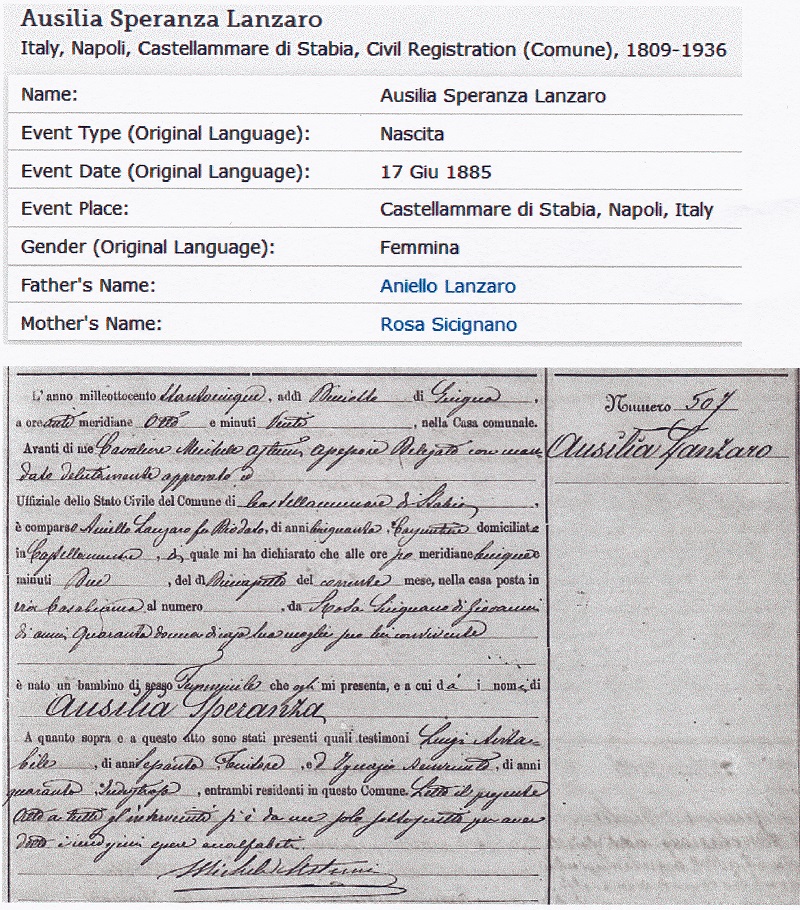 Ausilia Speranza Lanzaro
Italy, Napoli, Castellammare di Stabia, Civil Registration (Comune), 1809-1936
Name: Ausilia Speranza Lanzaro
Event Type (Original Language): Nascita
Event Date (Original Language): 17 Giu 1885
Event Place: Castellammare di Stabia, Napoli, Italy
Gender (Original Language): Femmina
Father's Name: Aniello Lanzaro
Mother's Name: Rosa Sicignano
L'anno milleottocento ottantacinque, addì Diciotto di Giugno,
a ore meridiane Otto e minuti Venti, nella Casa comunale.
Avanti di me Cavaliere Michele Assessore Delegato con man-
dato debitamente approvato
Uffiziale dello Stato Civile del Comune di Castellammare di Stabia,
è comparso Aniello Lanzaro fu Diodato, di anni cinquanta, domiciliato
in Castellammare, quale mi ha dichiarato che alle ore meridiane cinque e
minuti Due, del dì Diciassette del corrente mese, nella casa posta in
via al numero , da Rosa di Giovanni
di anni quaranta donna di casa sua moglie seco lui convivente
è nato un bambino di sesso Femminile che egli mi presenta, e a cui dà i nomi di
Ausilia Speranza
A quanto sopra e a questo atto sono stati presenti quali testimoni Luigi
, di anni sessanta, e Ignazio , di anni
quaranta , entrambi residenti in questo Comune. Letto il presente
Atto a tutti gl'intervenuti si è da me solo sottoscritto per aver
analfabeti.
Numero 507
Ausilia Lanzaro